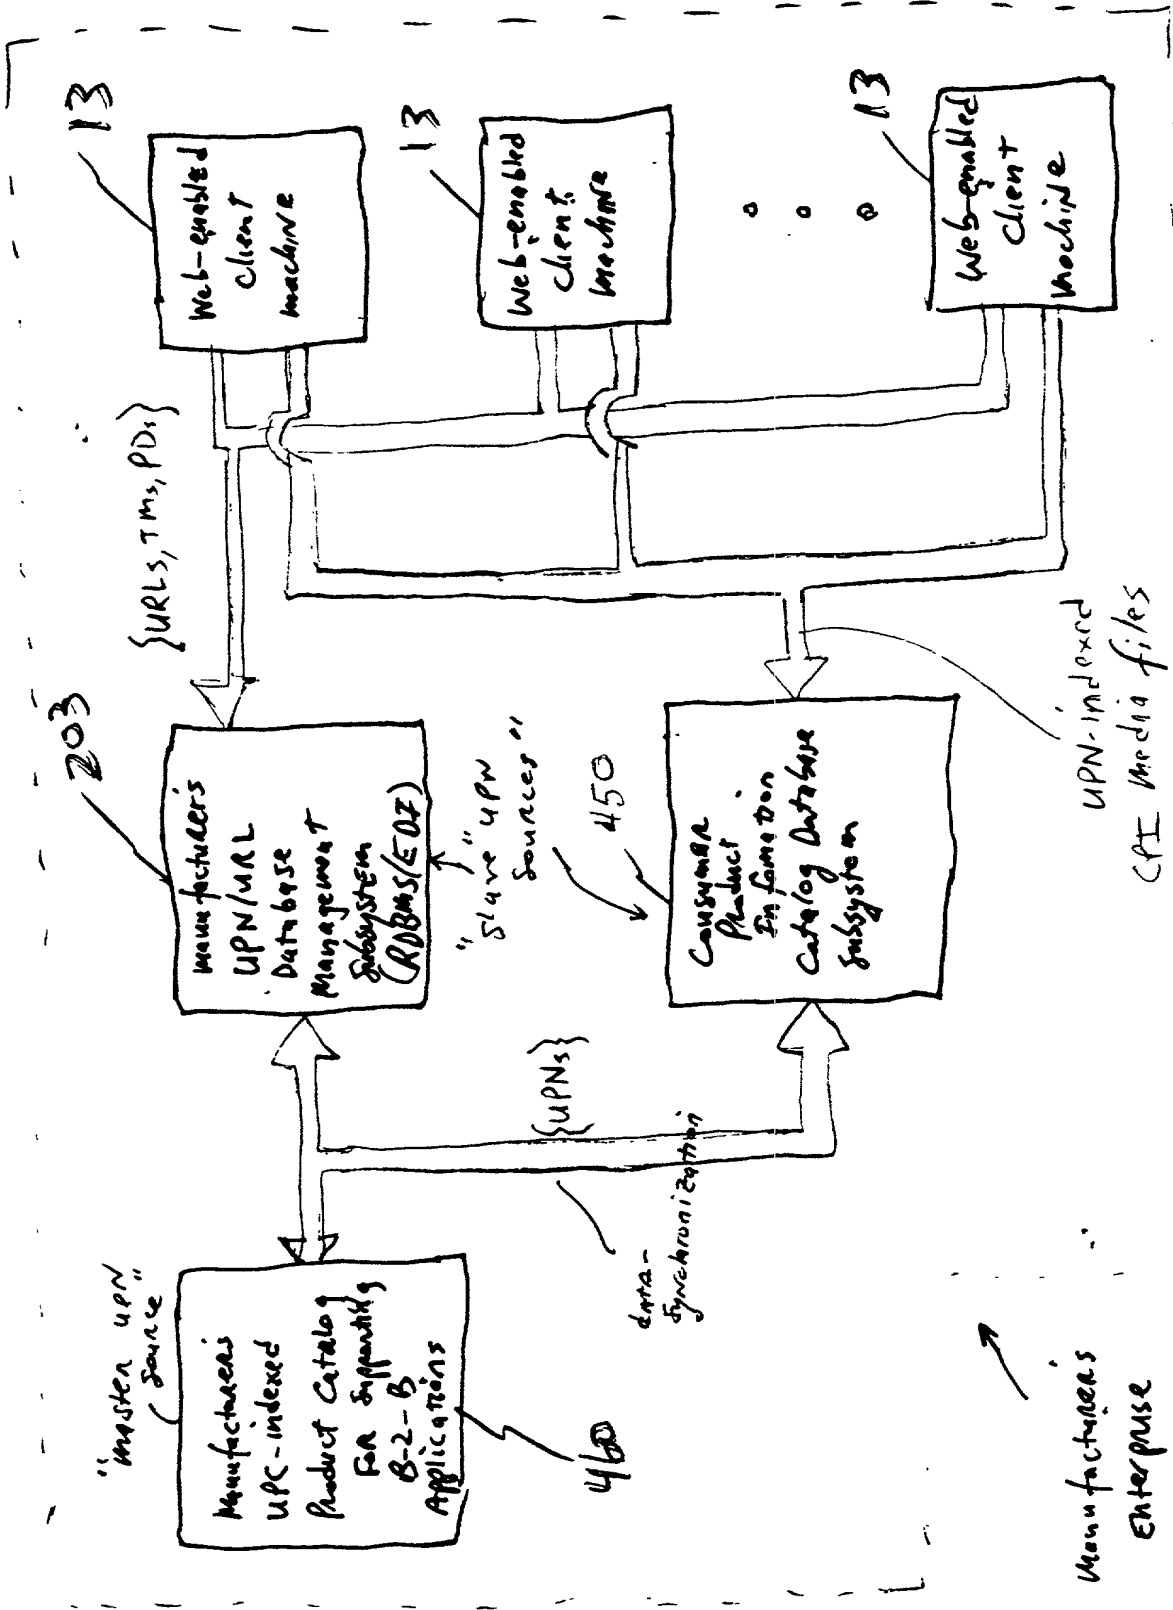 "master UPN
source"
Manufacturers
UPC-indexed
Product Catalog
For Supporting
B-2-B
Applications
460
data-
synchronization
{UPNs}
203
manufacturers
UPN/URL
Database
Management
Subsystem
(RDBMS/EDI)
"slave" UPN
sources"
450
Consumer
Product
Information
Catalog Database
Subsystem
{URLs, TMs, PDs}
UPN-indexed
CPI media files
13
Web-enabled
Client
machine
13
Web-enabled
Client
machine
13
Web-enabled
Client
machine
manufacturers
Enterprise